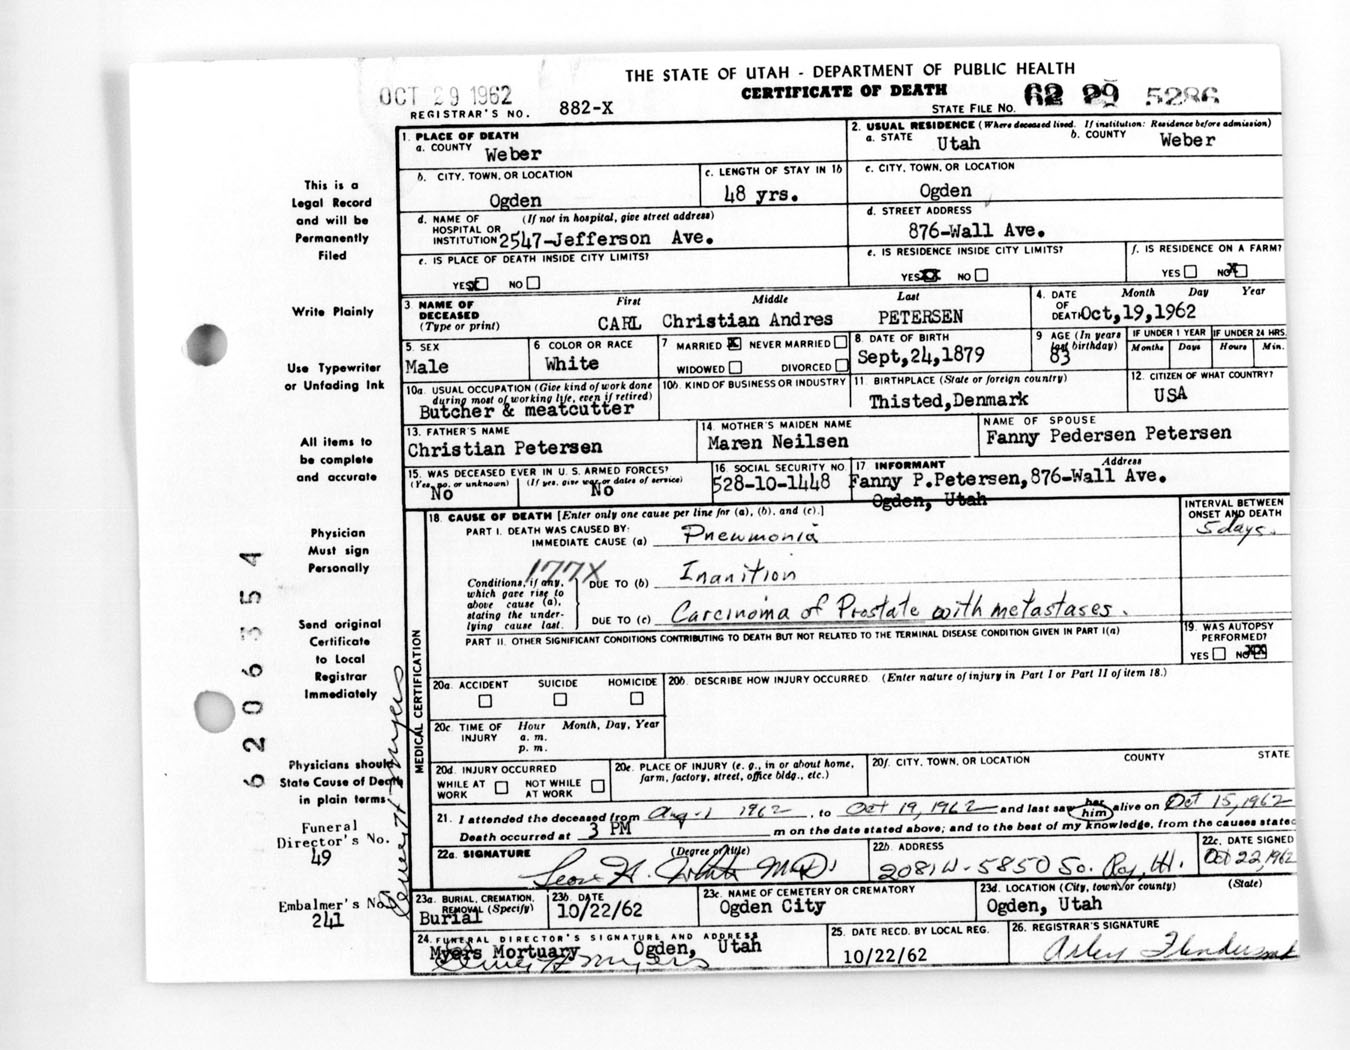 THE STATE OF UTAH - DEPARTMENT OF PUBLIC HEALTH
CERTIFICATE OF DEATH
OCT 29 1962
REGISTRAR'S NO. 882-X
STATE FILE NO. 62 29 5286
This is a
Legal Record
and will be
Permanently
Filed
Write Plainly
Use Typewriter
or Unfading Ink
All items to
be complete
and accurate
Physician
Must sign
Personally
Send original
Certificate
to Local
Registrar
Immediately
Physicians should
State Cause of Death
in plain terms
Funeral
Director's No.
49
Embalmer's No.
241
6206354
1. PLACE OF DEATH
a. COUNTY Weber
2. USUAL RESIDENCE (Where deceased lived. If institution: Residence before admission)
a. STATE Utah b. COUNTY Weber
b. CITY, TOWN, OR LOCATION
Ogden
c. LENGTH OF STAY IN 1b
48 yrs.
c. CITY, TOWN, OR LOCATION
Ogden
d. NAME OF (If not in hospital, give street address)
HOSPITAL OR
INSTITUTION 2547-Jefferson Ave.
d. STREET ADDRESS
876-Wall Ave.
e. IS PLACE OF DEATH INSIDE CITY LIMITS?
YES X NO
e. IS RESIDENCE INSIDE CITY LIMITS?
YES XX NO
f. IS RESIDENCE ON A FARM?
YES NO X
3. NAME OF First Middle Last
DECEASED
(Type or print) CARL Christian Andres PETERSEN
4. DATE Month Day Year
OF
DEATH Oct,19,1962
5. SEX
Male
6 COLOR OR RACE
White
7 MARRIED X NEVER MARRIED
WIDOWED DIVORCED
8. DATE OF BIRTH
Sept,24,1879
9 AGE (In years
last birthday)
83
IF UNDER 1 YEAR IF UNDER 24 HRS.
Months Days Hours Min.
10a. USUAL OCCUPATION (Give kind of work done
during most of working life, even if retired)
Butcher & meatcutter
10b. KIND OF BUSINESS OR INDUSTRY
11 BIRTHPLACE (State or foreign country)
Thisted,Denmark
12. CITIZEN OF WHAT COUNTRY?
USA
13. FATHER'S NAME
Christian Petersen
14. MOTHER'S MAIDEN NAME
Maren Neilsen
NAME OF SPOUSE
Fanny Pedersen Petersen
15. WAS DECEASED EVER IN U. S. ARMED FORCES?
(Yes, no. or unknown) (If yes. give war or dates of service)
No No
16. SOCIAL SECURITY NO.
528-10-1448
17 INFORMANT Address
Fanny P.Petersen,876-Wall Ave.
Ogden, Utah
MEDICAL CERTIFICATION
18. CAUSE OF DEATH [Enter only one cause per line for (a), (b), and (c).]
INTERVAL BETWEEN
ONSET AND DEATH
PART I. DEATH WAS CAUSED BY:
IMMEDIATE CAUSE (a) Pneumonia 5 days.
177X
Conditions, if any,
which gave rise to
above cause (a),
stating the under-
lying cause last.
DUE TO (b) Inanition
DUE TO (c) Carcinoma of Prostate with metastases.
PART II. OTHER SIGNIFICANT CONDITIONS CONTRIBUTING TO DEATH BUT NOT RELATED TO THE TERMINAL DISEASE CONDITION GIVEN IN PART I(a)
19. WAS AUTOPSY
PERFORMED?
YES NO XX
20a. ACCIDENT SUICIDE HOMICIDE
20b. DESCRIBE HOW INJURY OCCURRED. (Enter nature of injury in Part I or Part II of item 18.)
20c. TIME OF Hour Month, Day, Year
INJURY a. m.
p. m.
20d. INJURY OCCURRED
WHILE AT NOT WHILE
WORK AT WORK
20e. PLACE OF INJURY (e. g., in or about home,
farm, factory, street, office bldg., etc.)
20f. CITY, TOWN, OR LOCATION COUNTY STATE
21. I attended the deceased from Aug-1 1962, to Oct 19, 1962 and last saw her him alive on Oct 15, 1962
Death occurred at 3 PM m on the date stated above; and to the best of my knowledge, from the causes stated
22a. SIGNATURE (Degree or title)
M.D.
22b. ADDRESS
2081 W-5850 So. Roy, Ut.
22c. DATE SIGNED
Oct 22, 1962
23a. BURIAL, CREMATION,
REMOVAL (Specify)
Burial
23b. DATE
10/22/62
23c. NAME OF CEMETERY OR CREMATORY
Ogden City
23d. LOCATION (City, town, or county) (State)
Ogden, Utah
24. FUNERAL DIRECTOR'S SIGNATURE AND ADDRESS
Myers Mortuary Ogden, Utah
25. DATE RECD. BY LOCAL REG.
10/22/62
26. REGISTRAR'S SIGNATURE